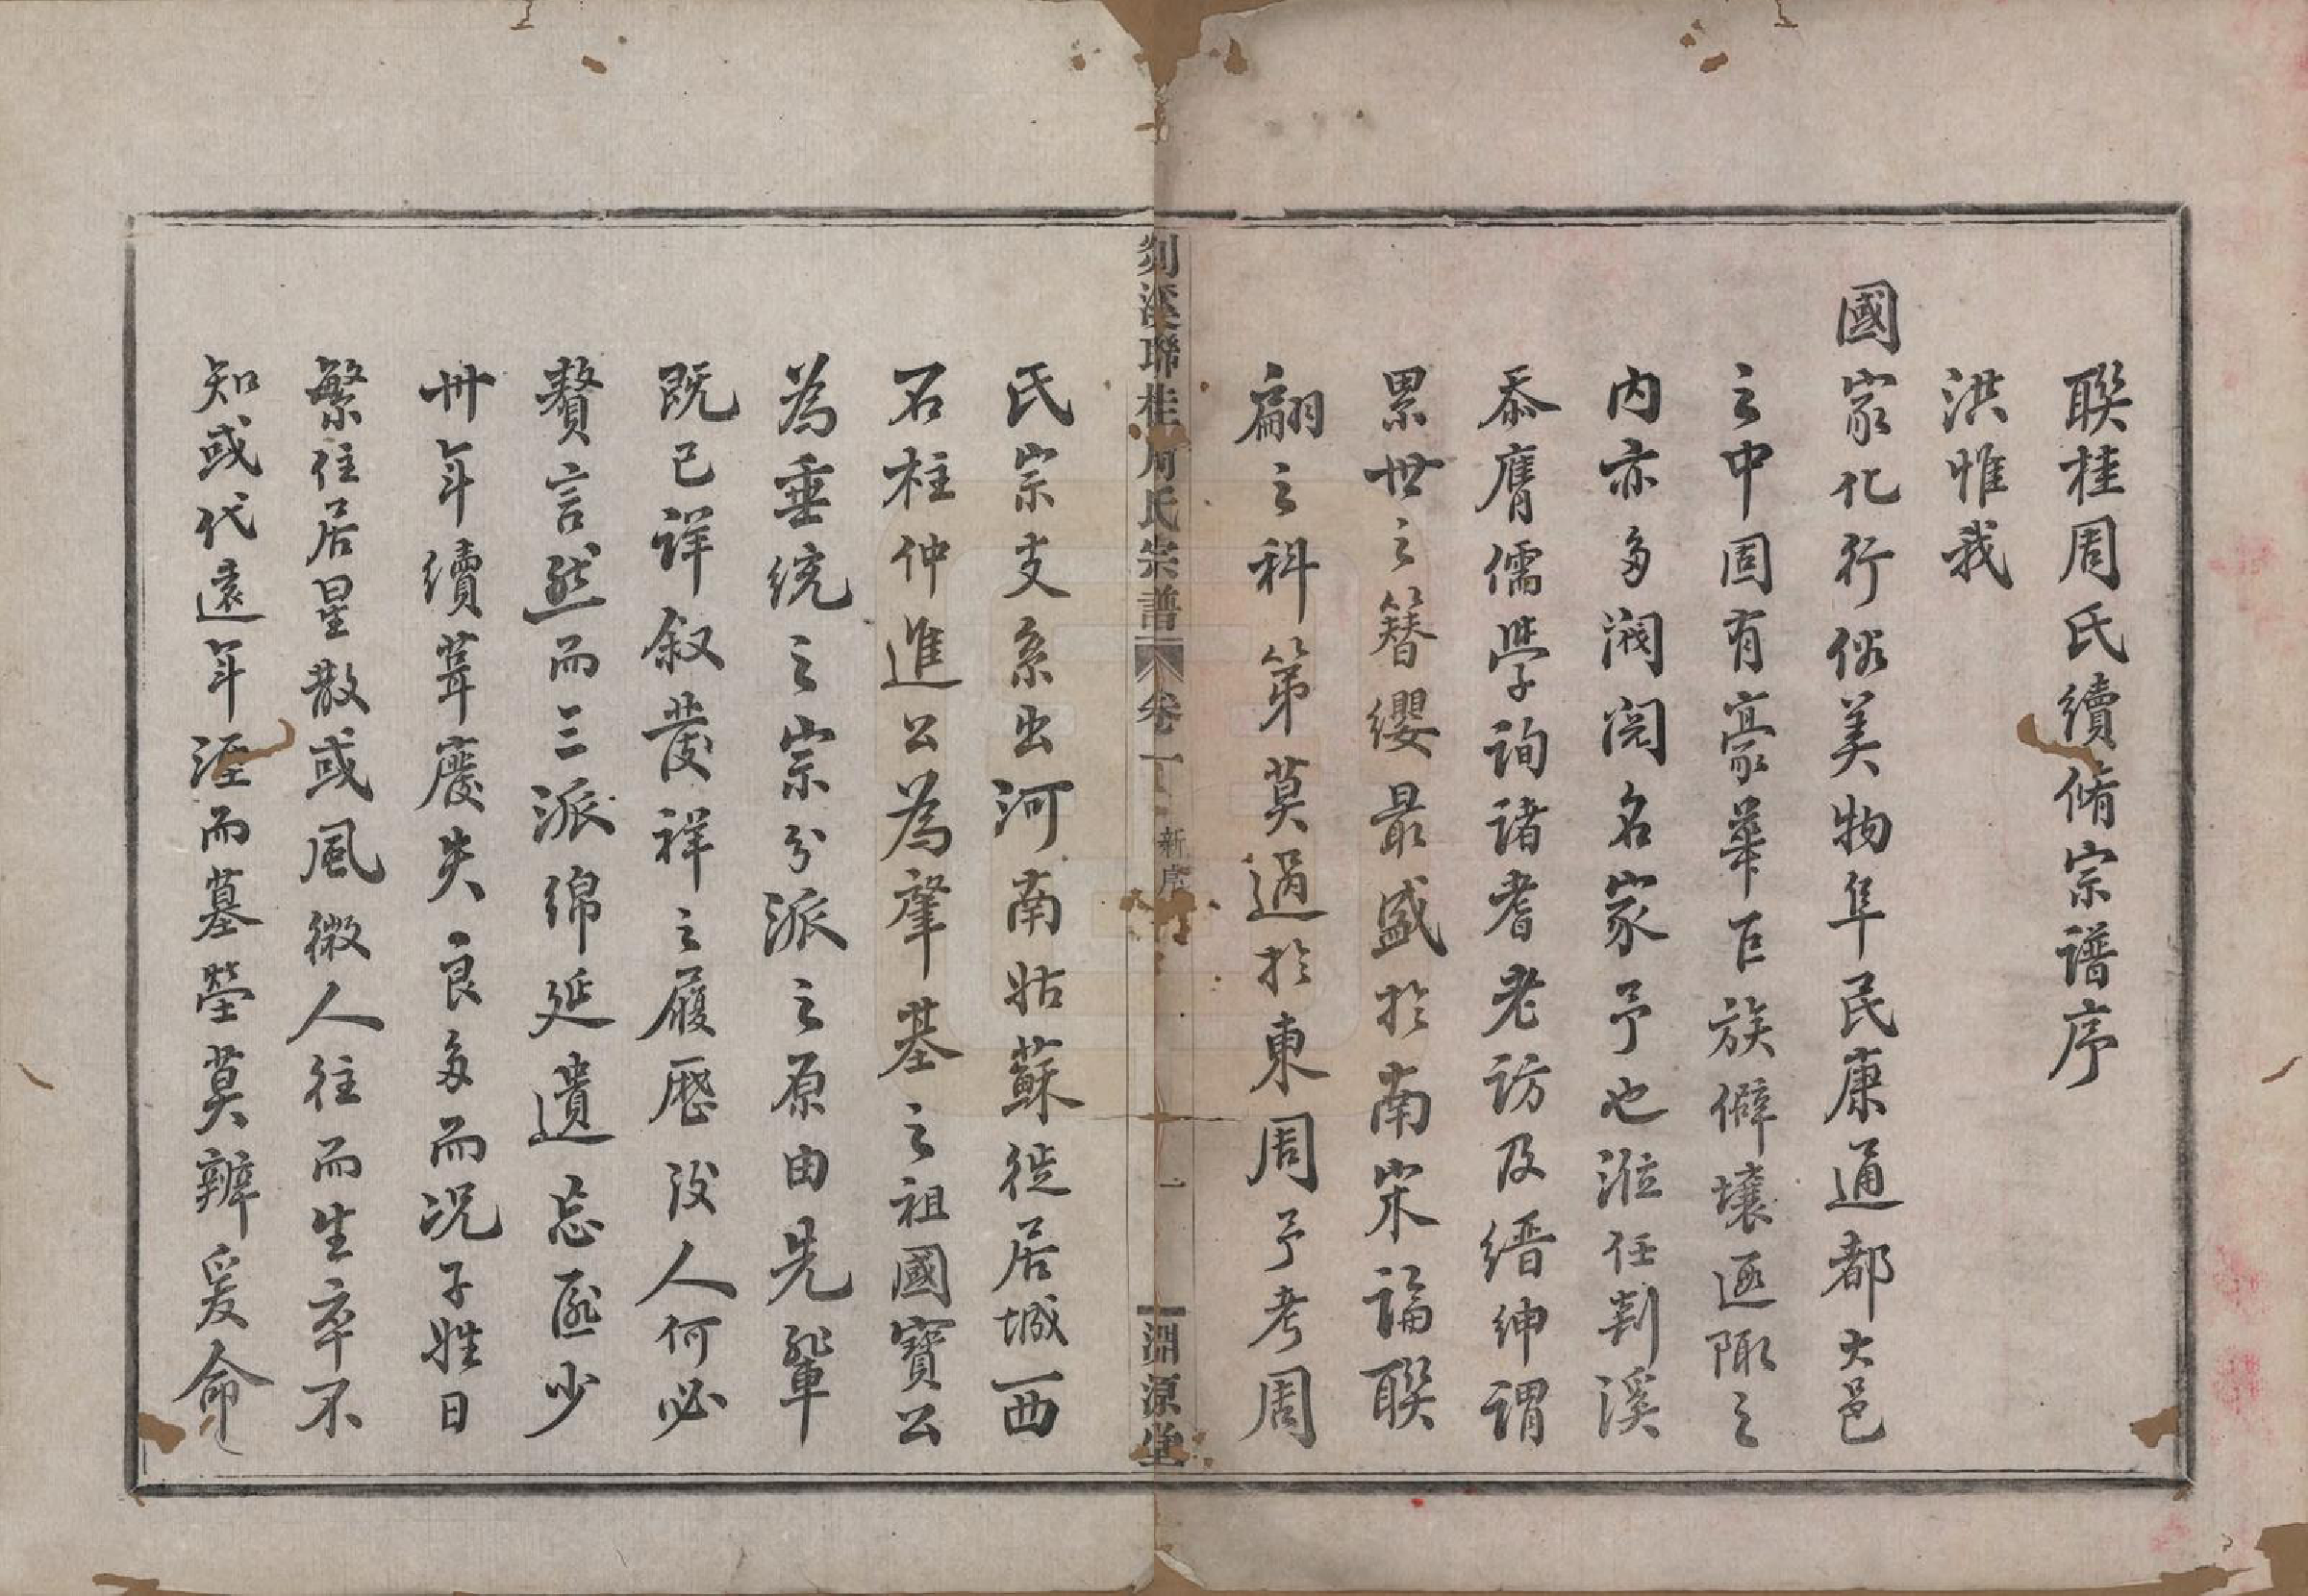 聯桂周氏續脩宗譜序
洪惟我
國家化行俗美物阜民康通都大邑
之中固有豪華巨族僻壤遐陬之
內亦多閥閱名家予也涖任剡溪
忝膺儒學詢諸耆老訪及縉紳謂
累世之簪纓最盛於南宋論聯
翩之科第莫過於東周予考周
剡溪聯桂周氏宗譜 卷一 新序 一 淵源堂
氏宗支系出河南姑蘇徙居城西
石柱仲進公為肇基之祖國寶公
為垂統之宗分派之原由先輩
既已詳叙發祥之履歷後人何必
贅言然而三派綿延遺忘匪少
卅年續葺廢失良多而況子姓日
繁住居星散或風微人往而生卒不
知或代遠年湮而墓塋莫辨爰命